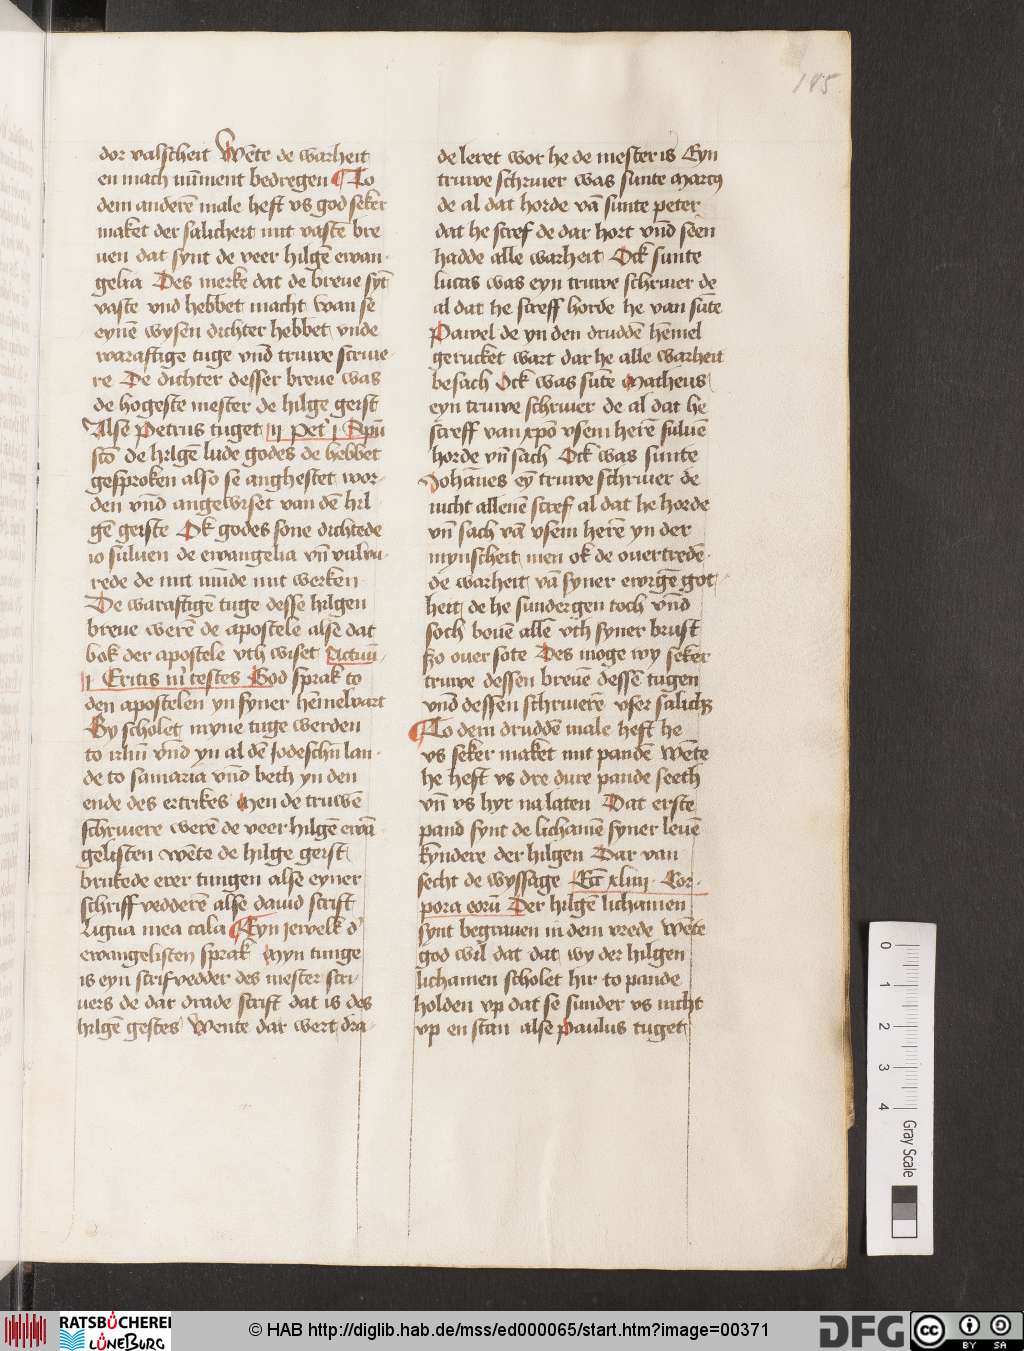 185
dor valscheit Wēte de warheit
en mach nūment bedregen To
dem anderē male heft vs god seker
maket der salicheit mit vastē bre
uen dat synt de veer hilgē ewan
gelia Des merke dat de breue syt
vaste vnd hebbet macht wan se
eynē wysen dichter hebbet vnde
waraftige tuge vnd truwe scriue
re De dichter desser breue was
de hogeste mester de hilge geist
Alse Petrus tuget ii Pet' i Spū
sto de hilgē lude godes de hebbet
gesproken also se anghestet wor
den vnd angewiset van dē hil
gē geiste Ok godes sone dichtede
io suluen de ewangelia vn vulvu
rede de mit mūde mit werken
De waraftigē tuge desse hilgen
breue werē de apostele alse dat
bok der apostele vth wiset Actuū
i Eritis m' testes God sprak to
den apostelen yn syner hēmelvart
Gy scholet myne tuge werden
to irlm vnd yn al dē Jodeschn lan
de to samaria vnd beth yn den
ende des ertrikes Men de truwē
schriuere werē de veer hilgē ewā
gelisten wēte de hilge geist
brukede erer tungen alse eyner
schriff vedderē alse dauid scrift
Ligua mea cala Eyn jewelk d'
ewangelisten sprak Myn tunge
is eyn scrifvedder des mester scri
uers de dar drade scrift dat is des
hilgē gestes Wente dar wert dra
de leret wor he de mester is Eyn
truwe schriuer was sunte Marcus
de al dat horde vā sunte peter
dat he scref de dar hort vnd seen
hadde alle warheit Ock sunte
lucas was eyn truwe schriuer de
al dat he screff horde he van sūte
Pawel de yn den druddē hēmel
gerucket wart dar he alle warheit
besach Ock was sūte Matheus
eyn truwe schriuer de al dat he
screff van xpō vsem herē suluē
horde vn sach Ock was sunte
Johānes ey truwe schriuer de
nicht allenē scref al dat he horde
vn sach vā vsem herē yn der
mynscheit men ok de ouertredē
de warheit vā syner ewigē got
heit de he sundergen toch vnd
soch bouē allē vth syner brust
so ouer sote Des moge wy seker
truwe dessen breuē dessē tugen
vnd dessen schriuerē vser salich
To dem druddē male heft he
vs seker maket mit pandē Wēte
he heft vs dre dure pande seeth
vn vs hyr na laten Dat erste
pand synt de lichamē syner leuē
kyndere der hilgen Dar van
secht de wyssage Ecc xliiii Cor
pora eorū Der hilgē lichamen
synt begrauen in dem vrede Wēte
god wil dat dat wy der hilgen
lichamen scholet hir to pande
holden vp dat se sunder vs nicht
vp en stan alse Paulus tuget
0
1
2
3
4
Gray Scale
RATSBÜCHEREI
LÜNEBURG
© HAB http://diglib.hab.de/mss/ed000065/start.htm?image=00371
DFG
cc
BY SA